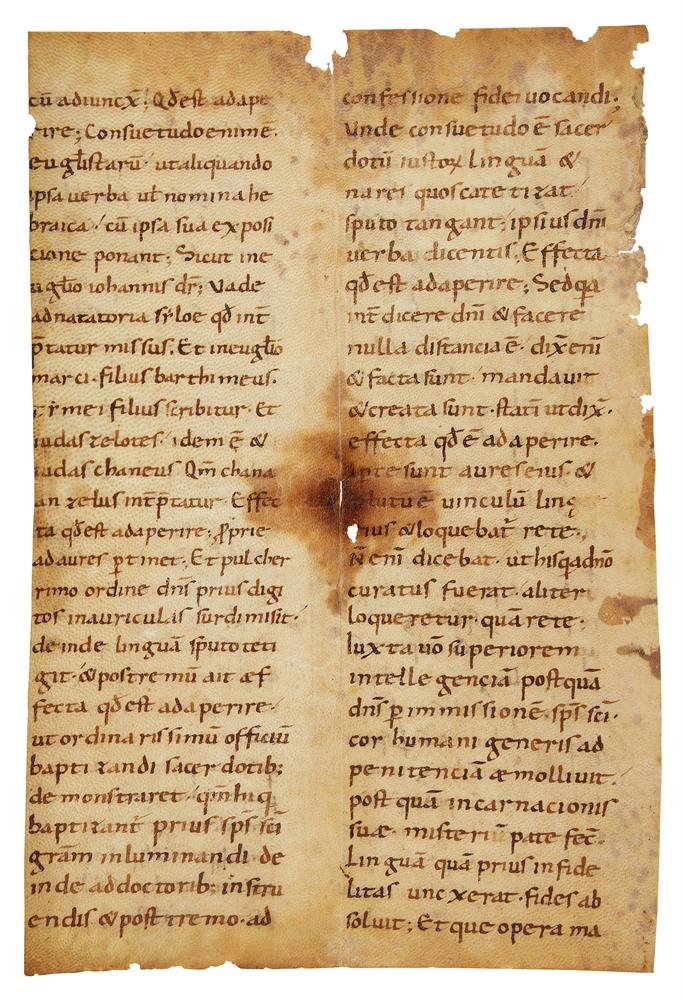 cū adiuncx̄; Qđ est adape
rire; Consuetudo enim ē
eugl̄istarū ut aliquando
ipsa uerba ut̄ nomina he
braica cū ipsa sua exposi
cione ponant; Sicut in e
uaglīo iohannis dr̄; Vade
ad natatoria syloe qđ int̄
p̄tatur missus. Et in euglīo
marci. filius barthimeus.
tymei filius scribitur. Et
iudas zelotes idem ē &
iudas chaneus Qm̄ chana
an zelus int̄p̄tatur. Effec
ta qđ est adaperire; ꝓprie
ad aures ꝑtinet. Et pulcher
rimo ordine dn̄s prius digi
tos in auriculas surdi misit.
deinde linguā sputo teti
git. & postremū ait æf
fecta qđ est adaperire.
ut ordinarissimū officiū
baptizandi sacerdotib;
demonstraret. qm̄ hi q
baptizant̄ prius sp̄s sc̄i
gr̄am inluminandi. de
inde ad doctorib; instru
endis & posttremo. ad
confessione fidei uocandi;
Vnde consuetudo ē sacer
dotū iustoꝝ linguā &
nares quos catetizat
sputo tangant; ipsius dn̄i
uerba dicentis. Effecta
qđ est adaperire; Sed qa
int̄ dicere dn̄i & facere
nulla distancia ē. dix̄ enī
& facta sunt. mandauit
& creata sunt. statī ut dix̄.
effecta qđ ē adaperire.
sunt aures eius. &
uinculū ling
eius & loquebat̄ rete.
N̄ enī dicebat. ut his q a dn̄o
curatus fuerat. aliter
loqueretur. quā rete.
Iuxta uō superiorem
intellegenciā postquā
dn̄s ꝑ immissionē. sp̄s sc̄i.
cor humani generis ad
penitenciā æmolliuit.
post quā incarnacionis
suæ. misteriū patefec̄.
Linguā quā prius infide
litas uncxerat. fides ab
soluit; Et que opera ma